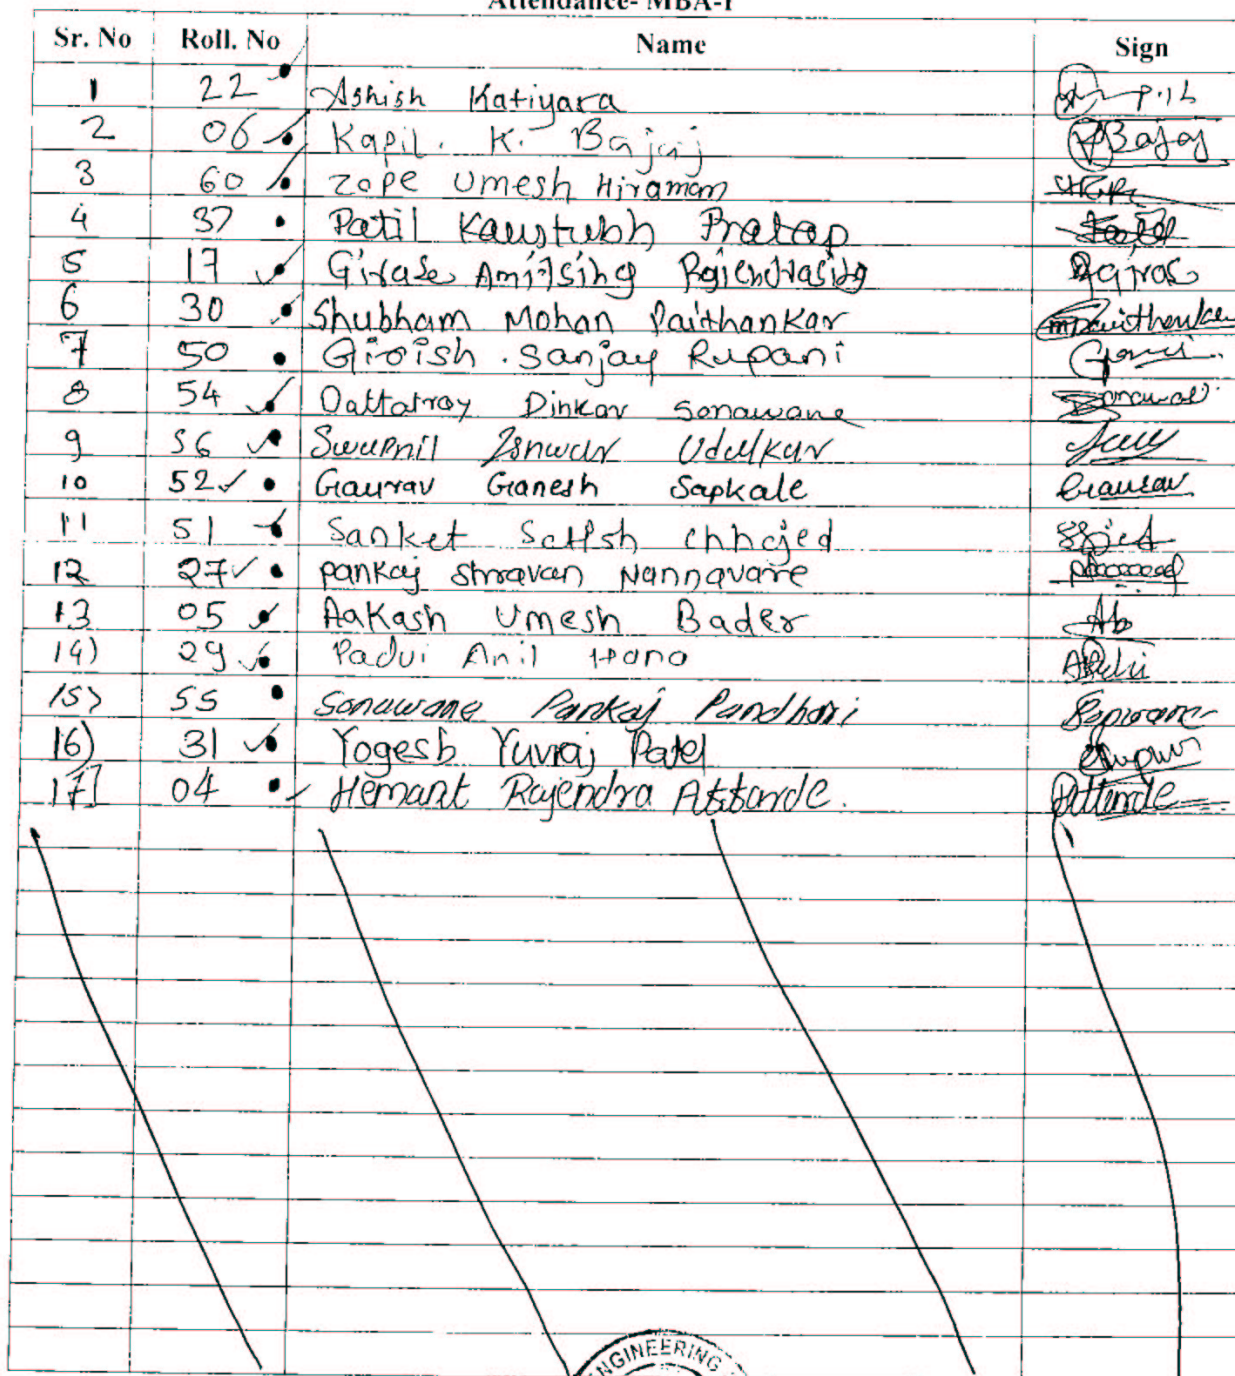 Attendance- MBA-I
Sr. No Roll. No Name Sign
1 22 Ashish Katiyara
2 06 Kapil. K. Bajaj Bajaj
3 60 Zope Umesh Hiraman
4 37 Patil Kaustubh Pratap
5 17 Girase Amitsing Rajendrasing
6 30 Shubham Mohan Paithankar
7 50 Girish . Sanjay Rupani
8 54 Dattatray Dinkar Sonawane
9 56 Swapnil Udulkar
10 52 Gaurav Ganesh Sapkale Gaurav
11 51 Sanket Satish chhajed
12 27 Pankaj Shravan Nannavare
13 05 Aakash Umesh Bader Ab
14) 29 Padvi Anil
15) 55 Sonawane Pankaj Pandhari
16) 31 Yogesh Yuvraj Patel
17] 04 Hemant Rajendra Attarde. Attarde
ENGINEERING